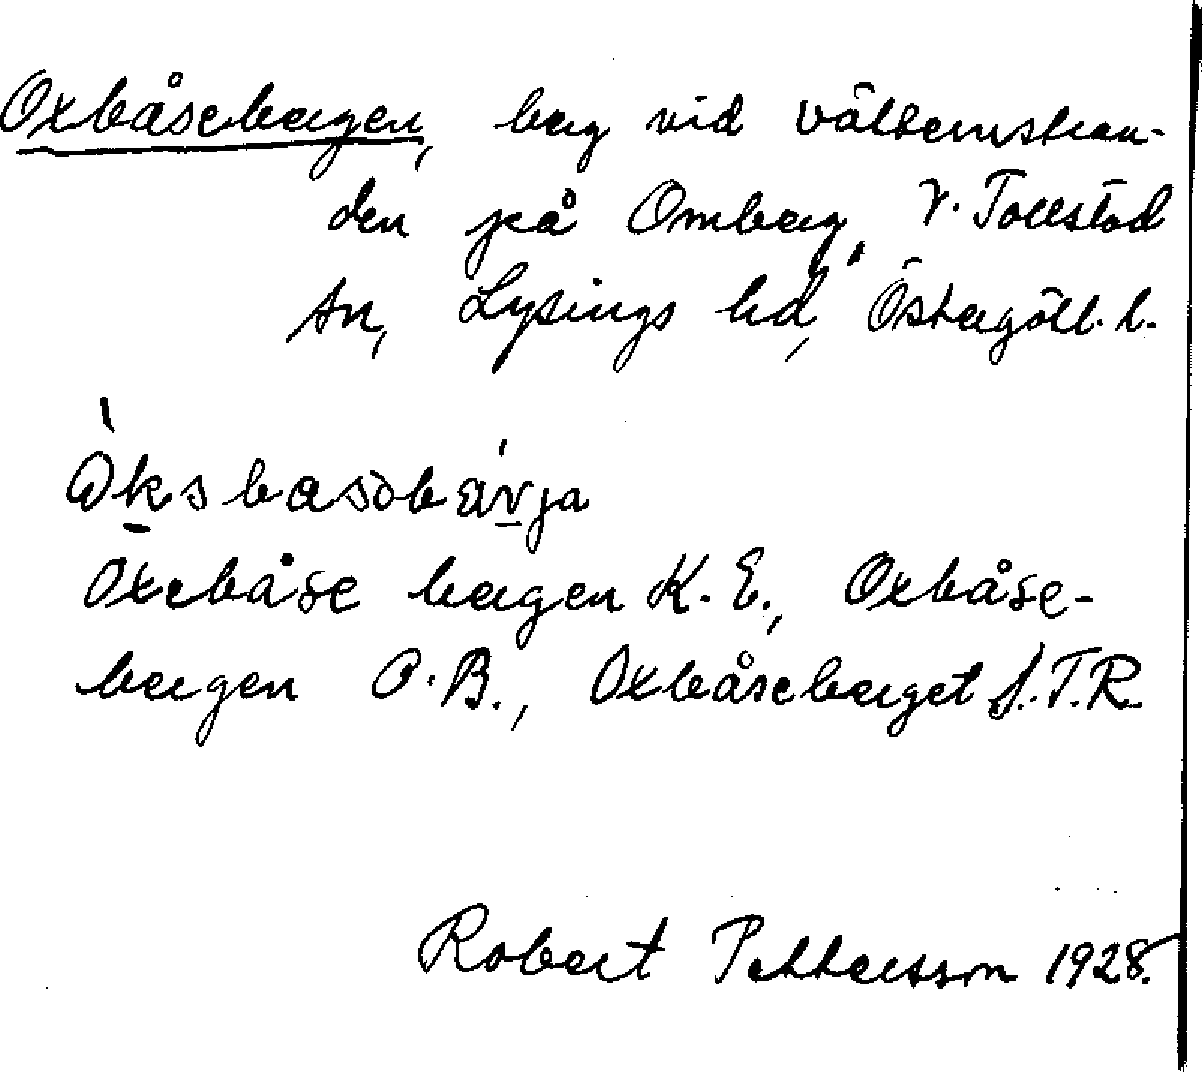 Oxbåsebergen, berg vid Vätternstran-
den på Omberg, V. Tollstad
sn, Lysings hd, Östergötl. l.
Oxbåse bergen K. E., Oxbåse-
bergen C. B., Oxbåseberget S.T.R.
Robert Pettersson 1928.